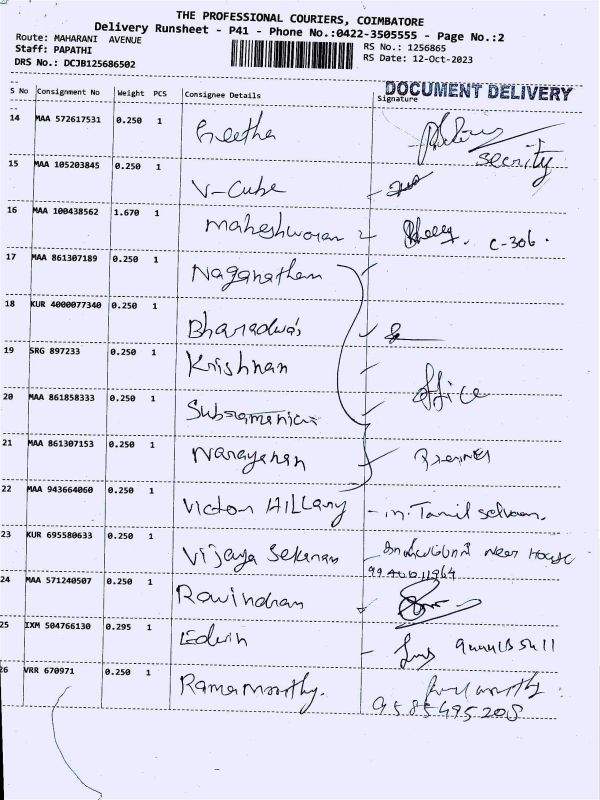 THE PROFESSIONAL COURIERS, COIMBATORE
Delivery Runsheet - P41 - Phone No.:0422-3505555 - Page No.:2
Route: MAHARANI AVENUE
RS No.: 1256865
Staff: PAPATHI
RS Date: 12-Oct-2023
DRS No.: DCJB125686502
DOCUMENT DELIVERY
S No Consignment No Weight PCS Consignee Details Signature
14 MAA 572617531 0.250 1 Geetha
Secrity
15 MAA 105203845 0.250 1 V-Cube
16 MAA 100438562 1.670 1 Maheshworan C-306.
17 MAA 861307189 0.250 1 Naganathan
18 KUR 4000077340 0.250 1 Bharadwas
19 SRG 897233 0.250 1 Krishnan
office
20 MAA 861858333 0.250 1 Subramanian
21 MAA 861307153 0.250 1 Narayanan
22 MAA 943664060 0.250 1 Victor Hillary - m. Tamil selvan.
23 KUR 695580633 0.250 1 Vijaya Sekaran Near House
24 MAA 571240507 0.250 1 Rowindran
25 IXM 504766130 0.295 1 Edwin
26 VRR 670971 0.250 1 Ramamoorthy.
9585495208